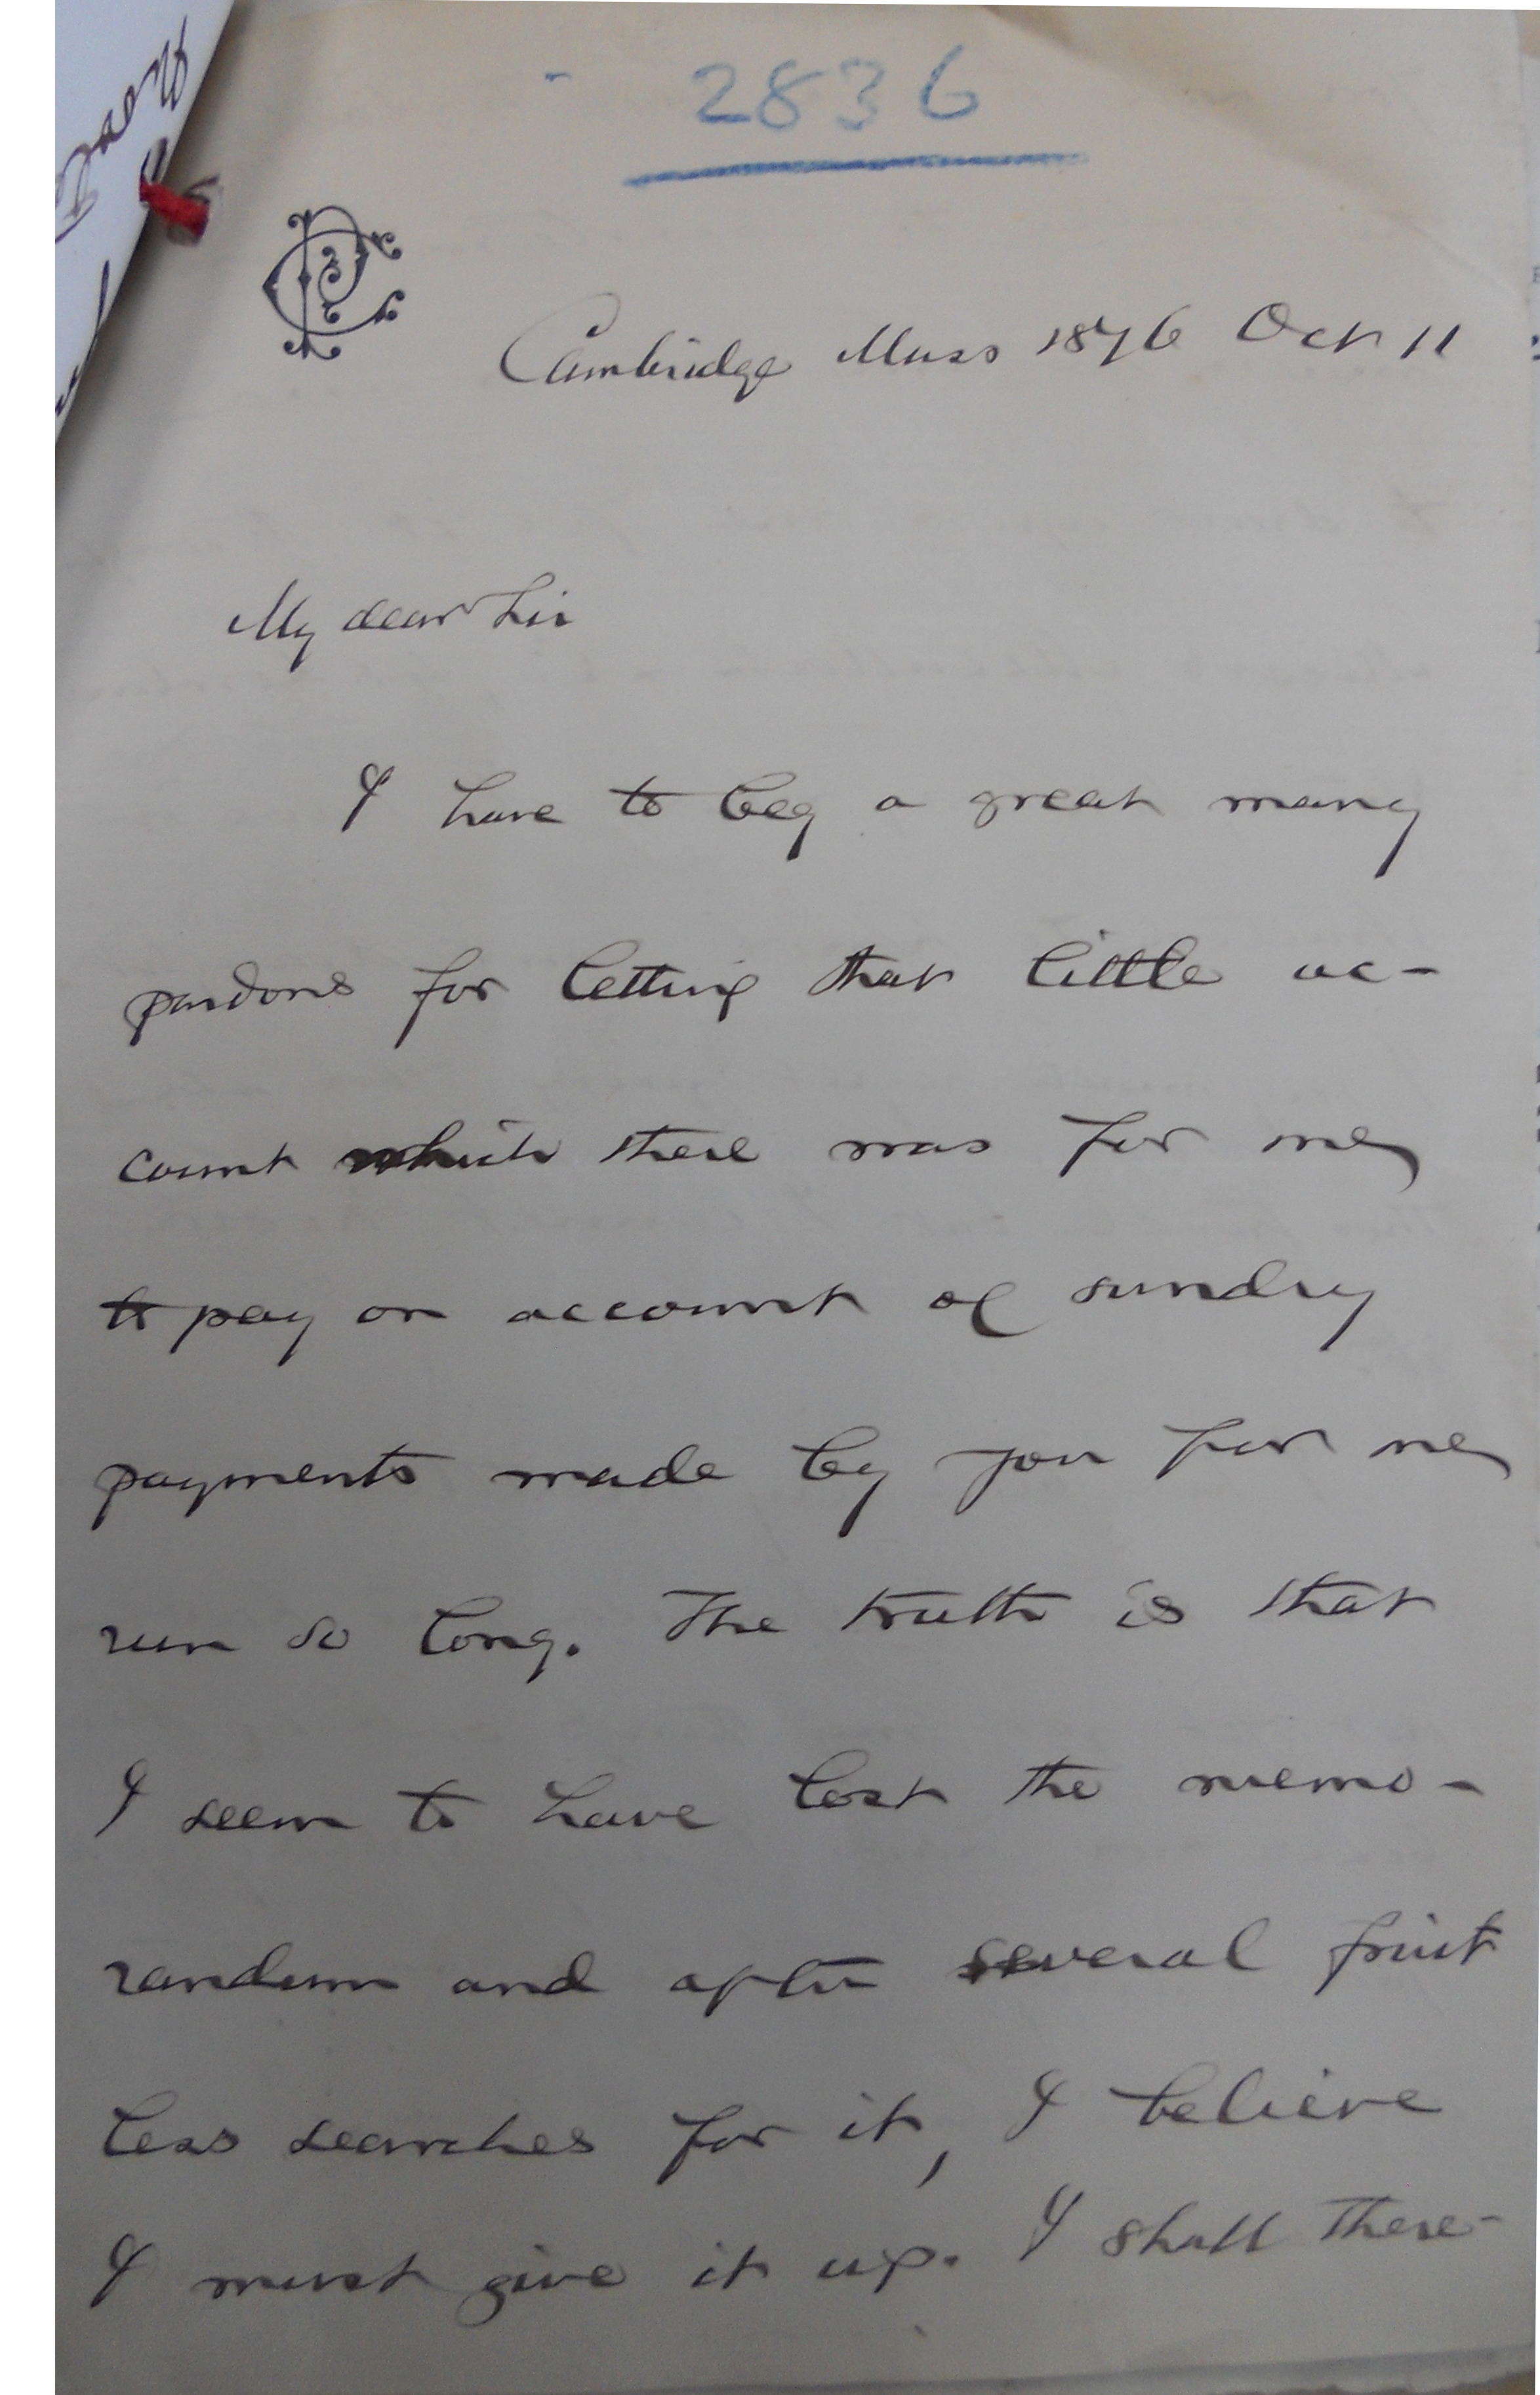 2836
Cambridge Mass 1876 Oct 11
My dear Sir
I have to beg a great many
pardons for letting that little ac-
count which there was for me
to pay on account of sundry
payments made by you for me
run so long. The truth is that
I seem to have lost the memo-
randum and after several fruit
less searches for it, I believe
I must give it up. I shall there-